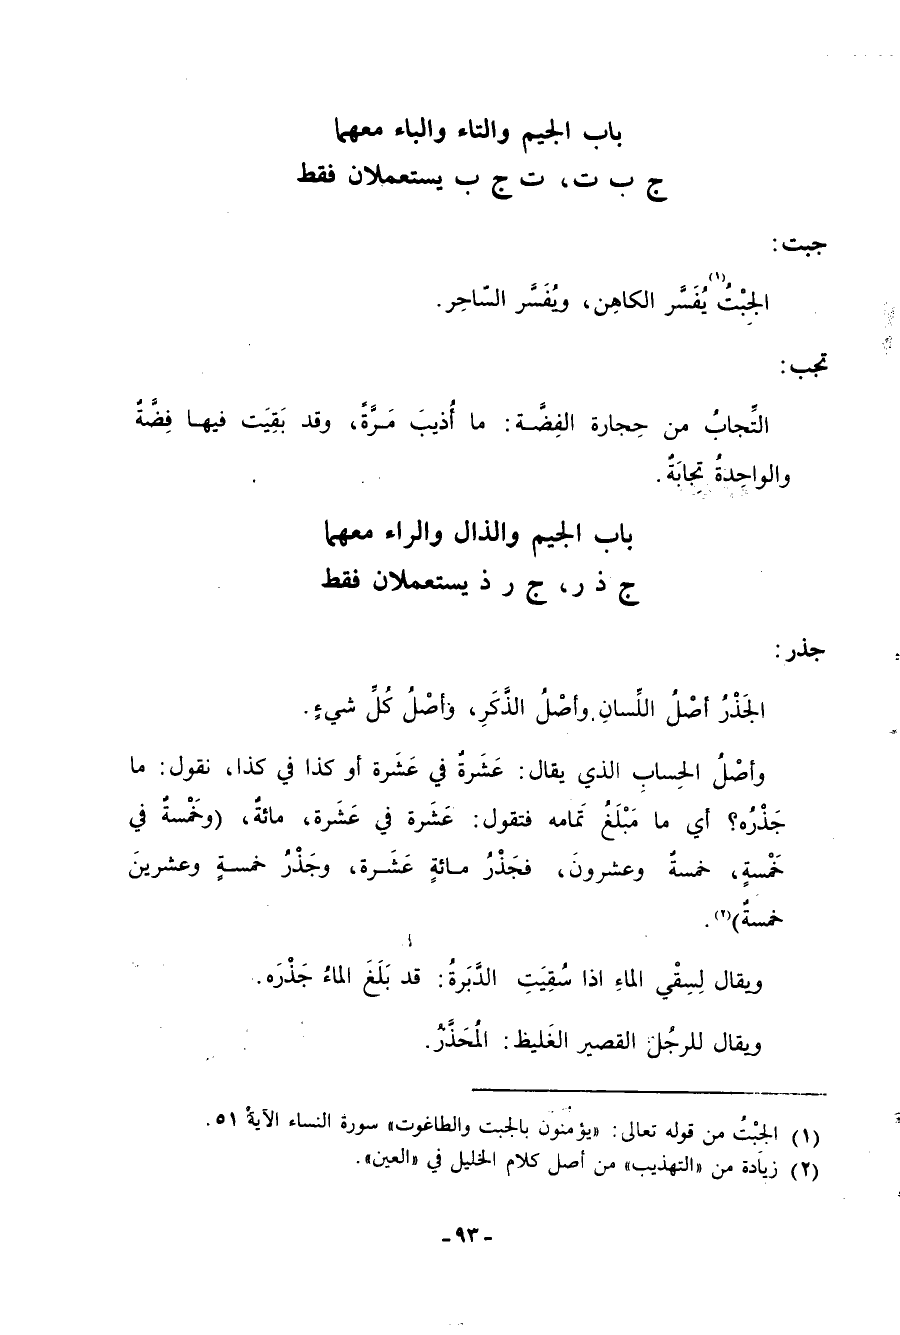 باب الجيم والتاء والباء معهما
ج ب ت، ت ج ب يستعملان فقط
جبت:
الجِبْتُ(١) يُفَسَّر الكاهِن، ويُفَسَّر السّاحِر.
تجب:
التِّجابُ من حِجارة الفِضَّة: ما أُذيبَ مَرَّةً، وقد بَقِيَت فيها فِضَّةٌ
والواحِدةُ تِجابَةٌ.
باب الجيم والذال والراء معهما
ج ذ ر، ج ر ذ يستعملان فقط
جذر:
الجَذْرُ أصْلُ اللِّسانِ وأصْلُ الذَّكَرِ، وأصْلُ كُلِّ شيءٍ.
وأصْلُ الحِسابِ الذي يقال: عَشَرةٌ في عَشَرة أو كذا في كذا، نقول: ما
جَذْرُه؟ أي ما مَبْلَغُ تَمامه فتقول: عَشَرة في عَشَرة، مائةٌ، (وخَمْسةٌ في
خَمْسةٍ، خمسةٌ وعشرونَ، فجَذْرُ مائةٍ عَشَرة، وجَذْرُ خمسةٍ وعشرينَ
خمسةٌ)(٢).
ويقال لِسِقْي الماءِ اذا سُقِيَتِ الدَّبَرةُ: قد بَلَغَ الماءُ جَذْرَه.
ويقال للرجُل القصير الغَليظ: المُجَذَّرُ.
(١) الجِبْتُ من قوله تعالى: «يؤمنون بالجبت والطاغوت» سورة النساء الآية ٥١.
(٢) زيادة من «التهذيب» من أصل كلام الخليل في «العين».
- ٩٣ -